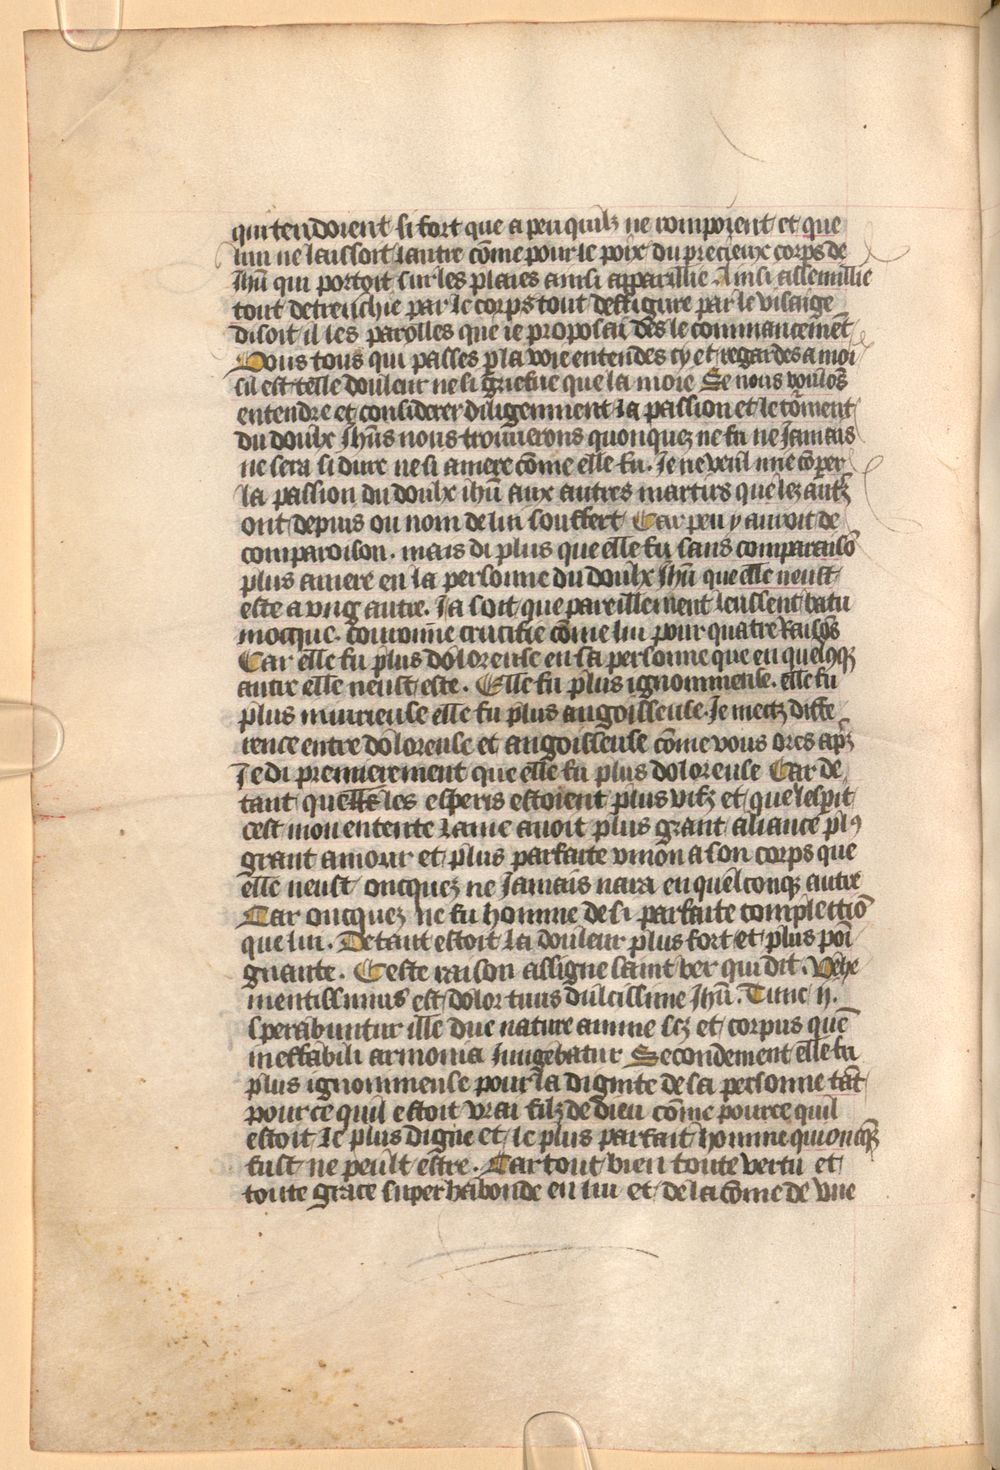 qui tendoient si fort que a peu quilz ne rompoient et que
lun ne laissoit lautre cōme pour le poix du precieux corps de
Ihū qui portoit sur les plaies ainsi apparillie. Ainsi assemillie
tout detrenchie par le corps tout deffigure par le visaige
disoit il les parolles que ie proposai des le commancement
Vous tous qui passes p la voie entendes cy et regardes a moi
sil est telle douleur ne si griefue que la moie Se nous voulōs
entendre et considerer diligemment la passion et le tōment
du doulx Ihūs nous trouuerons quonques ne fu ne Iamais
ne sera si dure ne si amere cōme elle fu. Ie ne veul mie cōper
la passion du doulx ihū aux autres martirs que lez autr̄s
ont depuis ou nom de lui souffert Car peu y auroit de
comparoison. mais di plus que elle fu sans comparaisō
plus amere en la personne du doulx Ihū que elle neust
este a vng autre. Ia soit que pareillement leussent batu
mocque. couronne crucifie cōme lui pour quatre Raisōs
Car elle fu plus doloreuse en sa personne que en quelqq̄
autre elle neust este. Elle fu plus ignommeuse. elle fu
plus iniurieuse elle fu plus angoisseuse. Ie mectz diffe
rence entre doloreuse et angoisseuse cōme vous ores apz̄
Ie di premierement que elle fu plus doloreuse Car de
tant que les esperis estoient plus vifz et que lesprit
cest mon entente lame auoit plus grant aliance pl9
grant amour et plus parfaite vnion a son corps que
elle neust oncquez ne Iamais nara en quelconq̄ autre
Car oncquez ne fu homme de si parfaite complectiō
que lui. De tant estoit la douleur plus fort et plus poī
gnante. Ceste raison assigne saint ber qui dit. Vehe
mentissimus est dolor tuus dulcissime Ihū. Tunc n̄.
sperabuntur ille due nature anime sez et corpus quē
ineffabili armonia Iungebatur Secondement elle fu
plus ignommeuse pour la dignite de sa personne tāt
pour ce quil estoit vrai filz de dieu cōme pource quil
estoit le plus digne et le plus parfait homme quioncq̄s
fust ne peult estre. Car tout bien toute vertu et
toute grace superhabonde en lui et de la cōme de vne